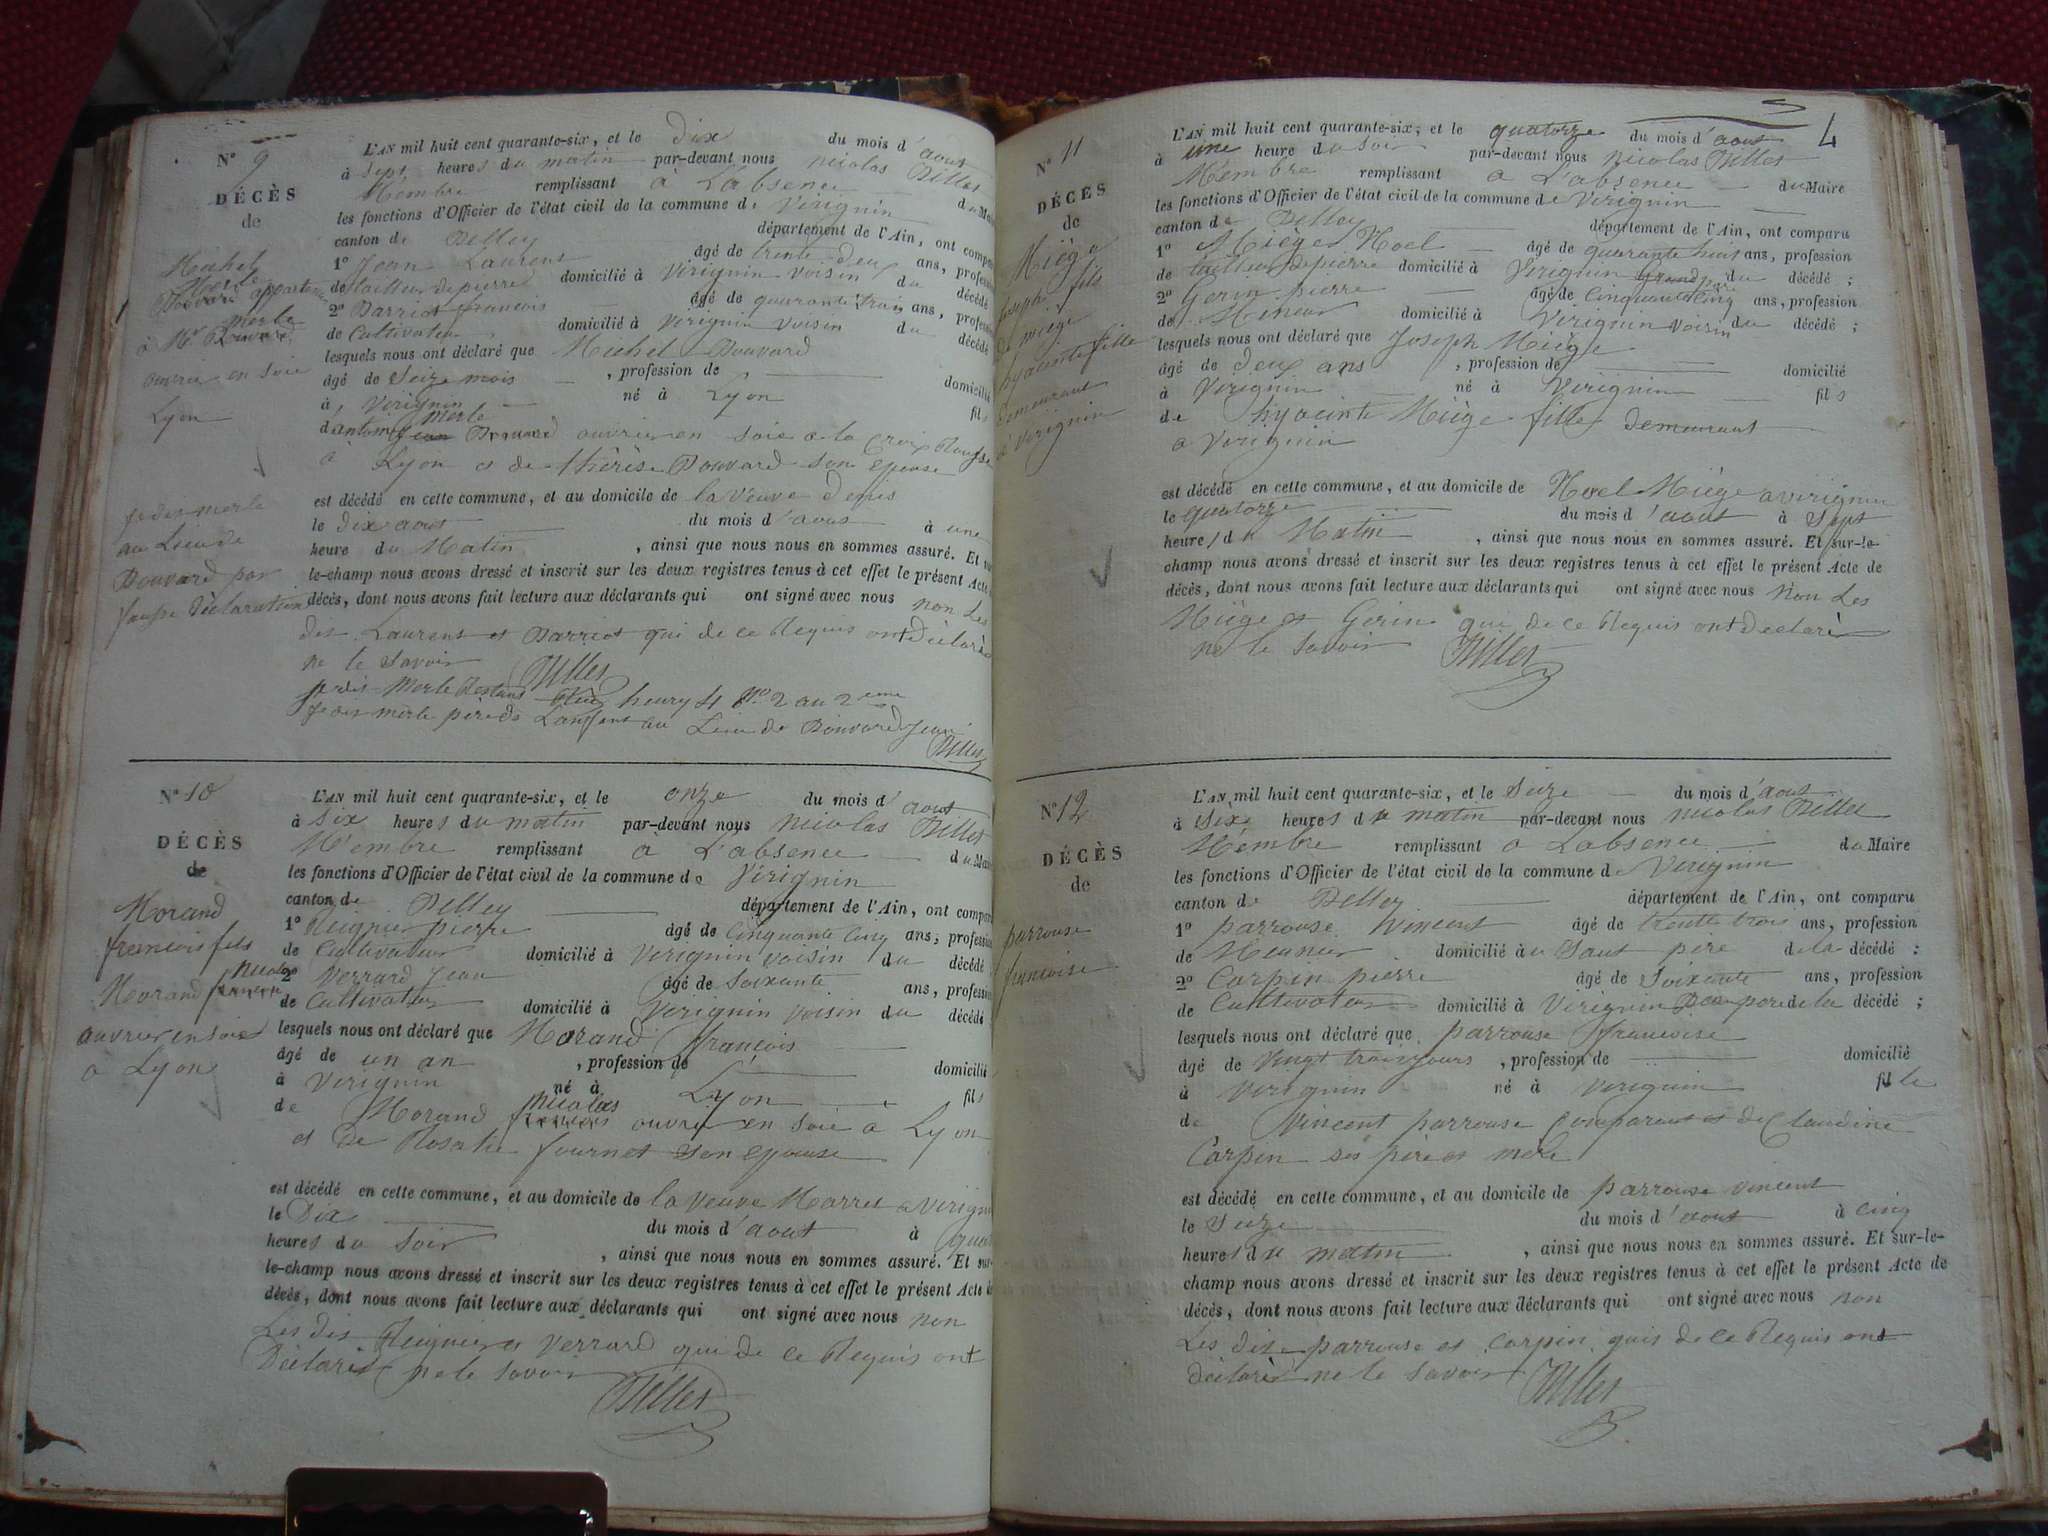 N° 9
DÉCÈS
de
Michel
Merle
Bouvard appartenant
merle
à Mr Bouvard
ouvrier en soie
Lyon
je dis merle
au Lieu de
Bouvard par
fausse Déclaration
L'AN mil huit cent quarante-six, et le dix du mois d'aout
à sept heures du matin par-devant nous nicolas Billet
Membre remplissant à L'absence du Mai
les fonctions d'Officier de l'état civil de la commune de Virignin
canton de Belley département de l'Ain, ont compa
1° Jean Laurent âgé de trente-deux ans, profes
de tailleur de pierre domicilié à Virignin voisin du décédé
2° Barriot francois âgé de quarante trois ans, profes
de Cultivateur domicilié à Virignin voisin du décédé
lesquels nous ont déclaré que Michel Bouvard
âgé de Seize mois , profession de domicilié
à Virignin né à Lyon fils
merle
d'antoine Jean Bouvard ouvrier en soie a la Croix Rousse
a Lyon et de thérèse Bouvard son epouse
est décédé en cette commune, et au domicile de la veuve denis
le dix aout du mois d'aout à une
heure du Matin , ainsi que nous nous en sommes assuré. Et su
le-champ nous avons dressé et inscrit sur les deux registres tenus à cet effet le présent Acte
décès, dont nous avons fait lecture aux déclarants qui ont signé avec nous non Les
dis Laurent et Barriot qui de ce Requis ont Déclaré
ne le savoir Billet
je dis merle père de L'enfant au Lieu de Bouvard Jean
Billet
N° 10
DÉCÈS
de
Morand
francois fils
nicolas
Morand francois
ouvrier en soie
a Lyon
L'AN mil huit cent quarante-six, et le onze du mois d'aout
à six heures du matin par-devant nous nicolas Billet
Membre remplissant à L'absence du Mai
les fonctions d'Officier de l'état civil de la commune de Virignin
canton de Belley département de l'Ain, ont compa
1° Reignier pierre âgé de cinquante cinq ans, profession
de Cultivateur domicilié à Virignin voisin du décédé
2° Verrard Jean âgé de Soixante ans, profess
de Cultivateur domicilié à Virignin voisin du décédé
lesquels nous ont déclaré que Morand françois
âgé de un an , profession de domicilié
à Virignin né à Lyon fils
nicolas
de Morand francois ouvrier en soie a Lyon
et de Rosalie fournet son epouse
est décédé en cette commune, et au domicile de la veuve Marret a virign
le Dix du mois d'aout à quat
heures du soir , ainsi que nous nous en sommes assuré. Et sur-
le-champ nous avons dressé et inscrit sur les deux registres tenus à cet effet le présent Acte de
décès, dont nous avons fait lecture aux déclarants qui ont signé avec nous non
Les dis Reignier et Verrard qui de ce Requis ont
Déclaré ne le savoir
Billet
4
N° 11
DÉCÈS
de
Miège
Joseph fils
de miège
hyacinte fille
demeurant
à Virignin
L'AN mil huit cent quarante-six, et le quatorze du mois d'aout
à une heure du soir par-devant nous nicolas Billet
Membre remplissant a L'absence du Maire
les fonctions d'Officier de l'état civil de la commune de Virignin
canton de Belley département de l'Ain, ont comparu
1° Miège Noel âgé de quarante huit ans, profession
de tailleur de pierre domicilié à Virignin grand père du décédé ;
2° Gerin pierre âgé de cinquante cinq ans, profession
de Mineur domicilié à Virignin voisin du décédé ;
lesquels nous ont déclaré que Joseph Miège
âgé de deux ans , profession de domicilié
à Virignin né à Virignin fils
de hyacinte Miège fille demeurant
a Virignin
est décédé en cette commune, et au domicile de Noel Miège a virignin
le quatorze du mois d'aout à sept
heures du Matin , ainsi que nous nous en sommes assuré. Et sur-le-
champ nous avons dressé et inscrit sur les deux registres tenus à cet effet le présent Acte de
décès, dont nous avons fait lecture aux déclarants qui ont signé avec nous Non Les
Miège et Gerin qui de ce Requis ont declaré
ne le savoir Billet
N° 12
DÉCÈS
de
parrouse
francoise
L'AN mil huit cent quarante-six, et le Seize du mois d'aout
à Six heures du matin par-devant nous nicolas Billet
Membre remplissant a L'absence du Maire
les fonctions d'Officier de l'état civil de la commune de Virignin
canton de Belley département de l'Ain, ont comparu
1° parrouse Vincent âgé de trente trois ans, profession
de Meunier domicilié à au Saut père de la décédé ;
2° Carpin pierre âgé de Soixante ans, profession
de Cultivateur domicilié à Virignin de la décédé ;
lesquels nous ont déclaré que parrouse francoise
âgé de vingt trois jours , profession de domicilié
à Virignin né à Virignin fille
de Vincent parrouse Comparent et de Claudine
Carpin ses père et mere
est décédé en cette commune, et au domicile de parrouse vincent
le Seize du mois d'aout à cinq
heures du matin , ainsi que nous nous en sommes assuré. Et sur-le-
champ nous avons dressé et inscrit sur les deux registres tenus à cet effet le présent Acte de
décès, dont nous avons fait lecture aux déclarants qui ont signé avec nous non
Les dis parrouse et Carpin quis de ce Requis ont
déclaré ne le savoir Billet